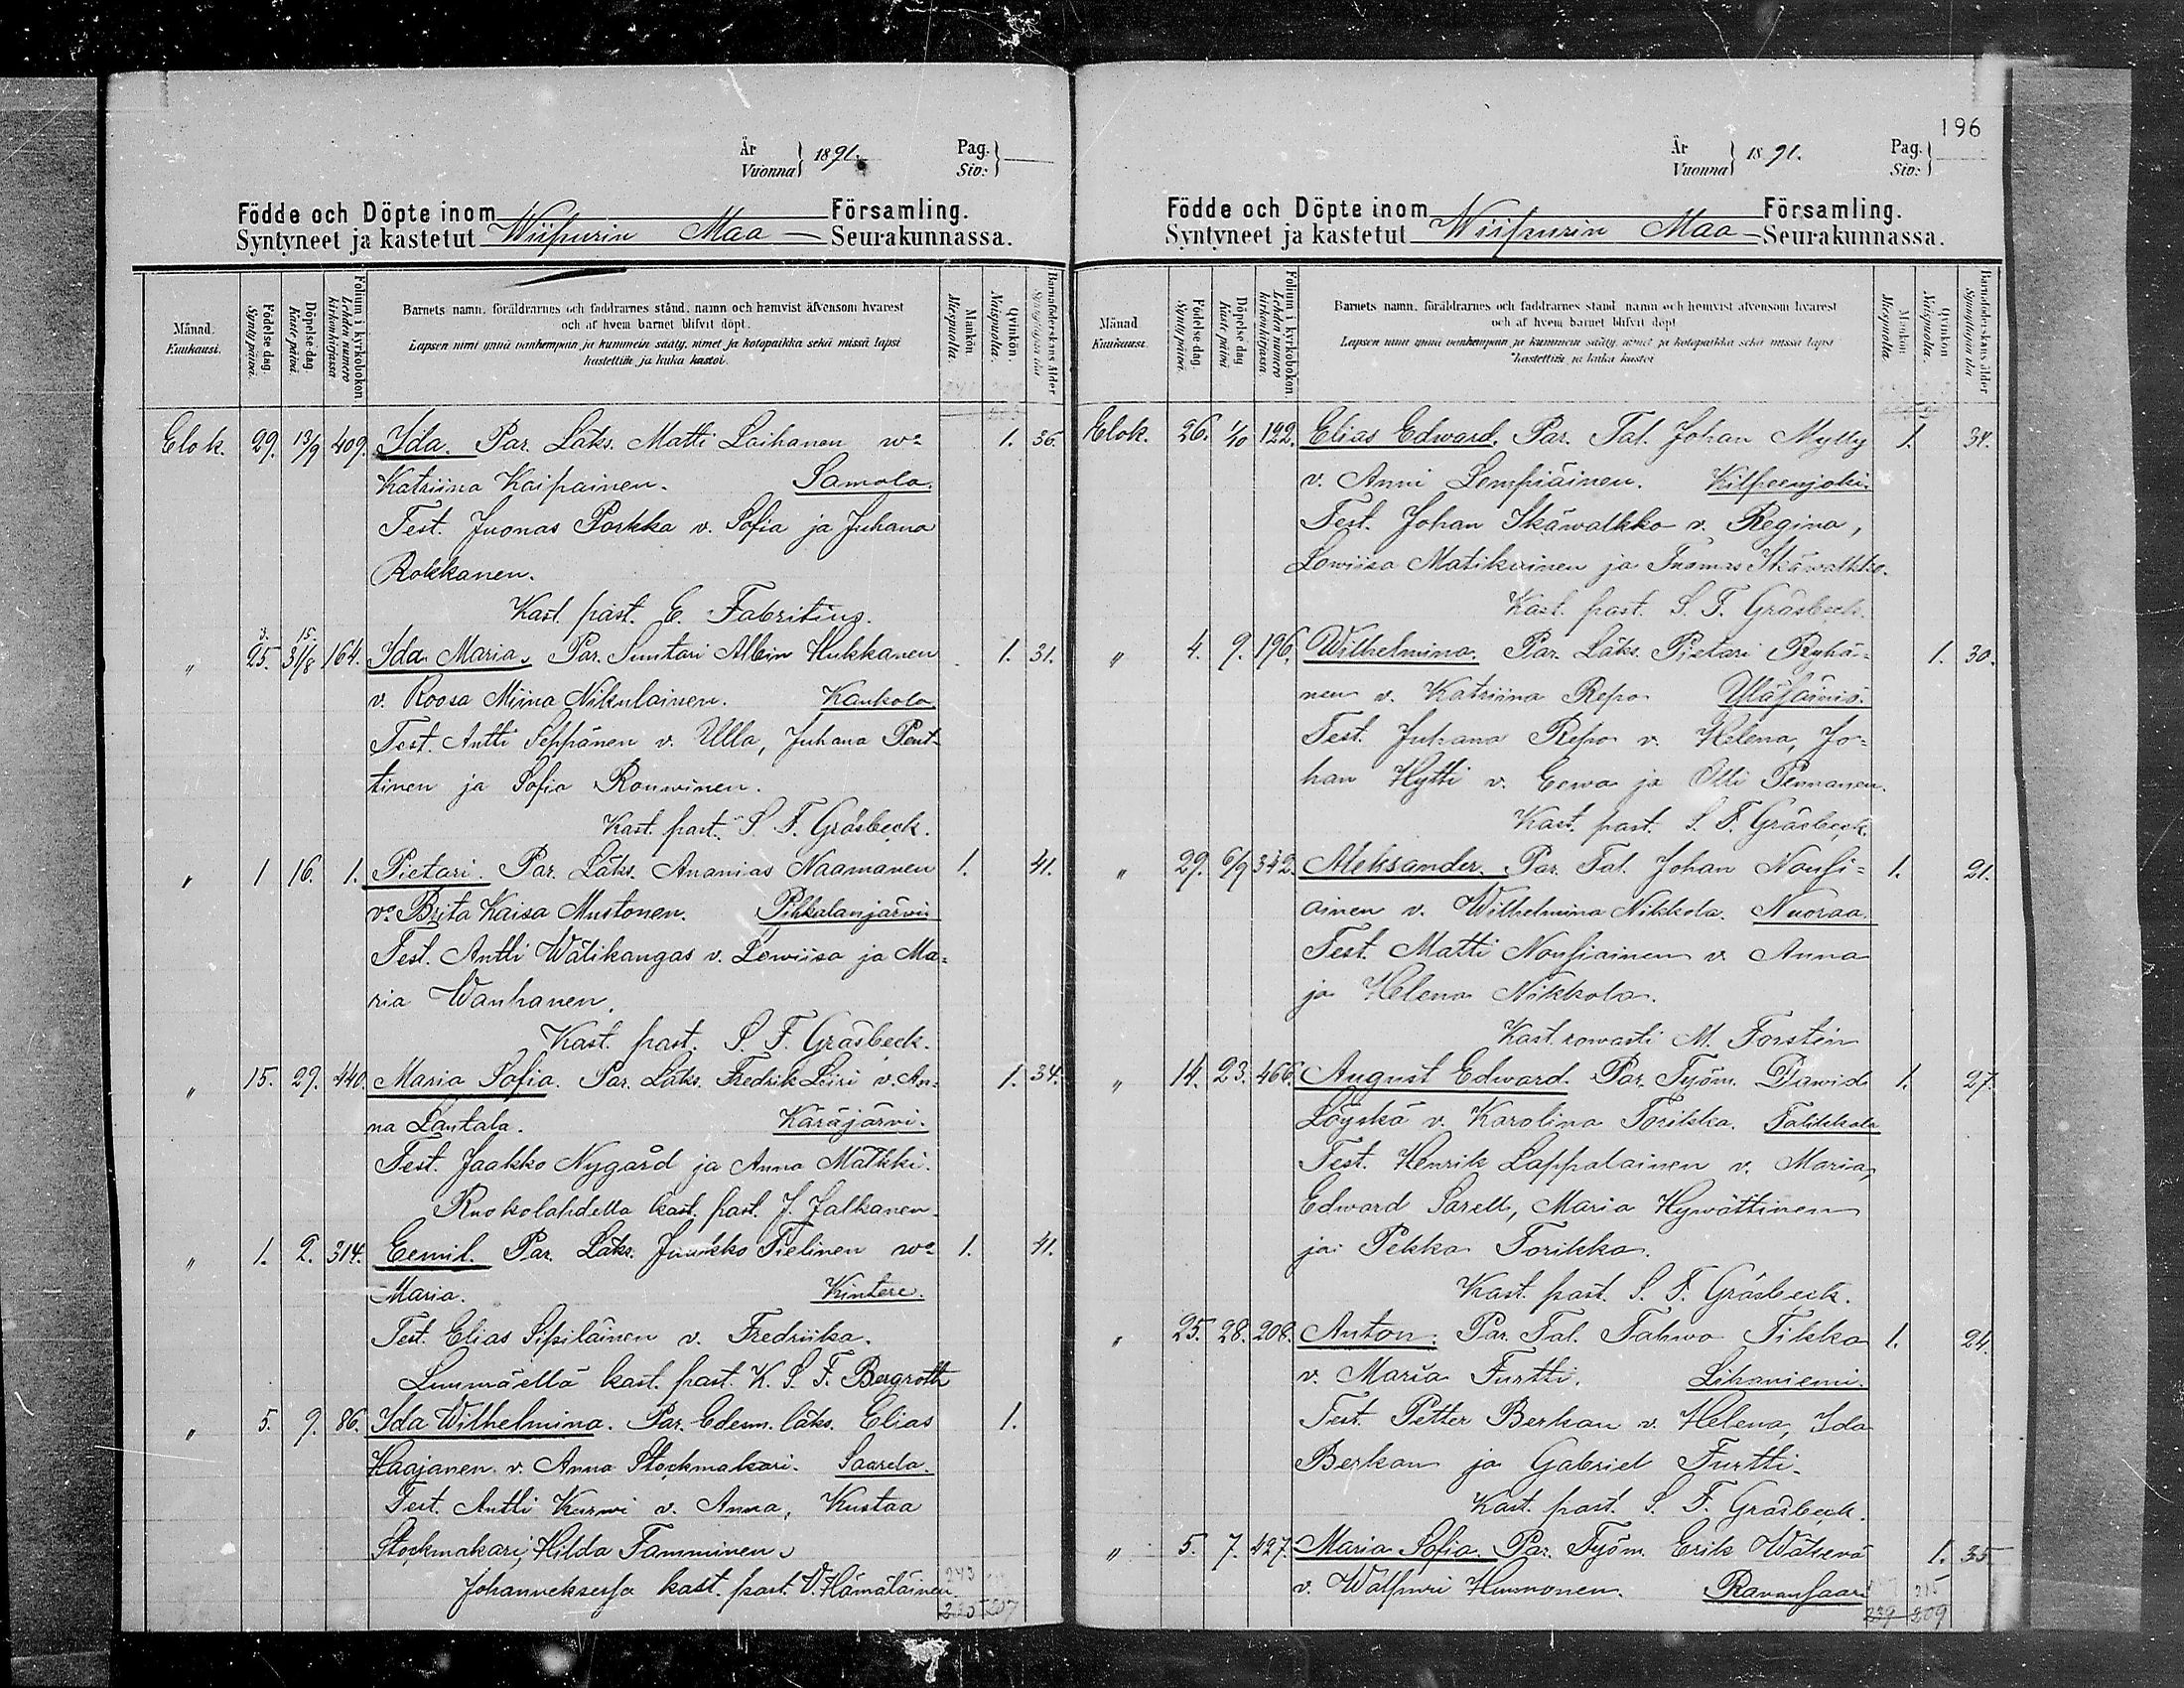 År
Vuonna } 1891.
Pag.
Siv: }
Födde och Döpte inom Församling.
Syntyneet ja kastetut Wiipurin Maa Seurakunnassa.
Månad.
Kuukausi.
Födelse dag.
Synty päivä.
Döpelse-dag.
Kaste päivä.
Folium i kyrkoboken
Lehden numero kirkonkirjassa
Barnets namn, föräldrarnes och faddrarnes stånd, namn och hemvist äfvensom hvarest
och af hvem barnet blifvit döpt.
Lapsen nimi ynnä vanhempain ja kummein sääty, nimet ja kotopaikka sekä missä lapsi
kastettiin ja kuka kastoi.
Mankön.
Miespuolta.
Qvinkön.
Naispuolta.
Barnaföderskans ålder
Synnyttäjän ikä
Elok. 29. 13/9 409. Ida. Par. Läks. Matti Laihanen wa 1. 36.
Katriina Kaipainen. Samola.
Test. Juonas Porkka v. Sofia ja Juhana
Rokkanen.
Kast. past. E. Fabritius.
v. 15.
" 25. 31/8 164. Ida Maria. Par. Suutari Albin Hukkanen 1. 31.
v. Roosa Miina Nikulainen. Kaukola
Test. Antti Seppänen v. Ulla, Juhana Pent-
tinen ja Sofia Rouwinen.
Kast. past. S. F. Gräsbeck.
" 1 16. 1. Pietari. Par. Läks. Ananias Naamanen 1. 41.
va Brita Kaisa Mustonen. Pihkalanjärvi
Test. Antti Wälikangas v. Lowiisa ja Ma-
ria Wanhanen.
Kast. past. S. F. Gräsbeck.
" 15. 29. 440. Maria Sofia. Par. Läks. Fredrik Leiri v. An- 1. 34.
na Lautala. Käräjärvi.
Test. Jaakko Nygård ja Anna Mälkki.
Ruokolahdella kast. past. J. Jalkanen.
" 1. 2. 314. Eemil. Par. Läks. Juukko Tielinen wa 1. 41.
Maria. Kintere.
Test. Elias Sipiläinen v. Fredriika.
Luumäellä kast. past. K. S. F. Bergroth
" 5. 9. 86. Ida Wilhelmina. Par. Edesm. läks. Elias 1.
Haajanen v. Anna Stockmakari. Saarela.
Test. Antti Kurwi v. Anna, Kustaa
Stockmakari, Hilda Tamminen.
Johanneksessa kast. past. V. Hämäläinen
243
207
196
År
Vuonna } 1891.
Pag.
Siv: }
Födde och Döpte inom Församling.
Syntyneet ja kastetut Wiipurin Maa Seurakunnassa.
Månad
Kuukausi
Födelse dag.
Synty päivä.
Döpelse dag
Kaste päivä
Folium i kyrkoboken
Lehden numero kirkonkirjassa
Barnets namn, föräldrarnes och faddrarnes stånd, namn och hemvist äfvensom hvarest
och af hvem barnet blifvit döpt
Lapsen nimi ynnä vanhempain ja kummein sääty, nimet ja kotopaikka sekä missä lapsi
kastettiin ja kuka kastoi
Mankön.
Miespuolta.
Qvinkön
Naispuolta.
Barnaföderskans ålder
Synnyttäjän ikä
Elok. 26. 1/10 122. Elias Edward. Par. Tal. Johan Mylly 1. 34.
v. Anni Lempiäinen. Kilpeenjoki.
Test. Johan Ikäwalkko v. Regina,
Lowiisa Matikainen ja Tuomas Ikäwalkko.
Kast. past. S. F. Gräsbeck.
" 4. 9. 196. Wilhelmina. Par. Läks. Pietari Ryhä- 1. 30.
nen v. Katriina Repo Yläsäiniö.
Test. Juhana Repo v. Helena, Jo-
han Hytti v. Eewa ja Olli Pennanen.
Kast. past. S. F. Gräsbeck.
" 29. 6/9 342. Aleksander. Par. Tal. Johan Nousi- 1. 21.
ainen v. Wilhelmina Nikkola. Nuoraa.
Test. Matti Nousiainen v. Anna
ja Helena Nikkola.
Kast. rowasti M. Forstén
" 14. 23. 466. August Edward. Par. Työm. Dawid 1. 27.
Löyskä v. Karolina Torikka. Talikkala
Test. Henrik Lappalainen v. Maria,
Edward Sarell, Maria Hywättinen
ja Pekka Torikka.
Kast. past. S. F. Gräsbeck.
" 25. 28. 208. Anton. Par. Tal. Tahwo Tikka 1. 24.
v. Maria Turtti. Lihaniemi.
Test. Petter Berkan v. Helena, Ida
Berkan ja Gabriel Turtti.
Kast. past. S. F. Gräsbeck.
" 5. 7. 427. Maria Sofia. Par. Työm. Erik Wätsevä 1. 35
v. Walpuri Hunnonen. Ravansaari
215
239 209